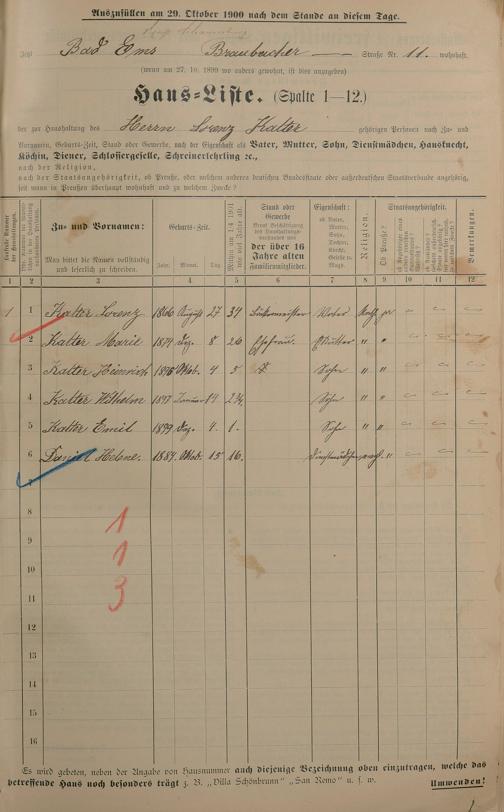 Auszufüllen am 29. Oktober 1900 nach dem Stande an diesem Tage.
Jetzt Bad Ems Braubacher Straße Nr. 11. wohnhaft.
(wenn am 27. 10. 1899 wo anders gewohnt, ist dies anzugeben)
Haus-Liste. (Spalte 1—12.)
der zur Haushaltung des Herrn Lorenz Kalter gehörigen Personen nach Zu- und
Vornamen, Geburts-Zeit, Stand oder Gewerbe, nach der Eigenschaft als Vater, Mutter, Sohn, Dienstmädchen, Hausknecht,
Köchin, Diener, Schlossergeselle, Schreinerlehrling ꝛc.,
nach der Religion,
nach der Staatsangehörigkeit, ob Preuße, oder welchem anderen deutschen Bundesstaate oder außerdeutschen Staatsverbande angehörig,
seit wann in Preußen überhaupt wohnhaft und zu welchem Zwecke?
Zu- und Vornamen: Geburts-Zeit. Stand oder Gewerbe Eigenschaft: Religion. Staatsangehörigkeit. Bemerkungen.
Man bittet die Namen vollständig und leserlich zu schreiben. Jahr. Monat. Tag. der über 16 Jahre alten Familienmitglieder. ob Vater, Mutter, Sohn, Tochter, Knecht, Geselle u. Magd. Ob Preuße?
1 2 3 4 5 6 7 8 9 10 11 12
1 1 Kalter Lorenz 1866 August 27 34 Vater Kath. pr
2 Kalter Marie 1874 Dez. 8 26 Ehefrau. Mutter " "
3 Kalter Heinrich 1896 Oktob. 4 5 Sohn " "
4 Kalter Wilhelm 1897 Januar 19 Sohn " "
5 Kalter Emil 1899 Dez. 4. 1. Sohn " "
6 Daniel Helene. 1884 Oktob. 15 16. Dienstmädchen evgl. "
7
8
9
10
11
12
13
14
15
16
1
1
3
Es wird gebeten, neben der Angabe von Hausnummer auch diejenige Bezeichnung oben einzutragen, welche das
betreffende Haus noch besonders trägt z. B. „Villa Schönbrunn" „San Remo" u. s. w. Umwenden!